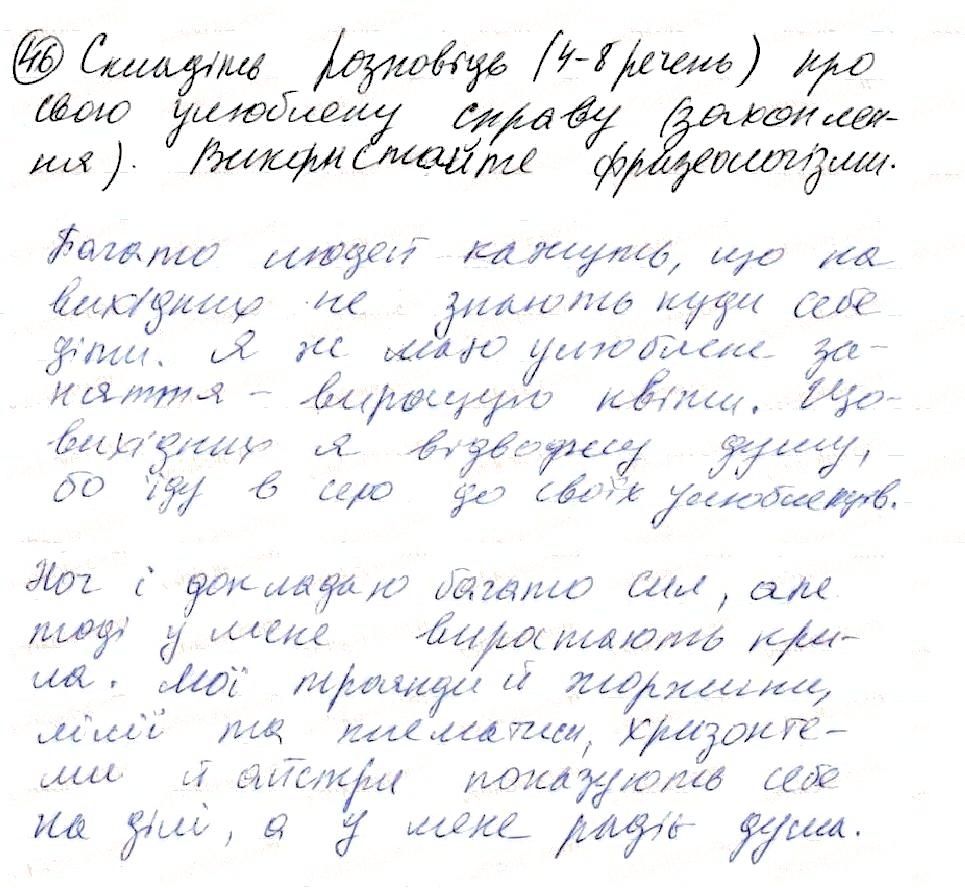 46 Складіть розповідь (4-8 речень) про
свою улюблену справу (захоплен-
ня). Використайте фразеологізми.
Багато людей кажуть, що на
вихідних не знають куди себе
діти. Я ж маю улюблене за-
няття – вирощую квіти. Що-
вихідних я відводжу душу,
бо їду в село до своїх улюбленців.
Хоч і докладаю багато сил, але
тоді у мене виростають кри-
ла. Мої троянди й жоржини,
лілії та клематиси, хризонте-
ми й айстри показують себе
на ділі, а у мене радіє душа.